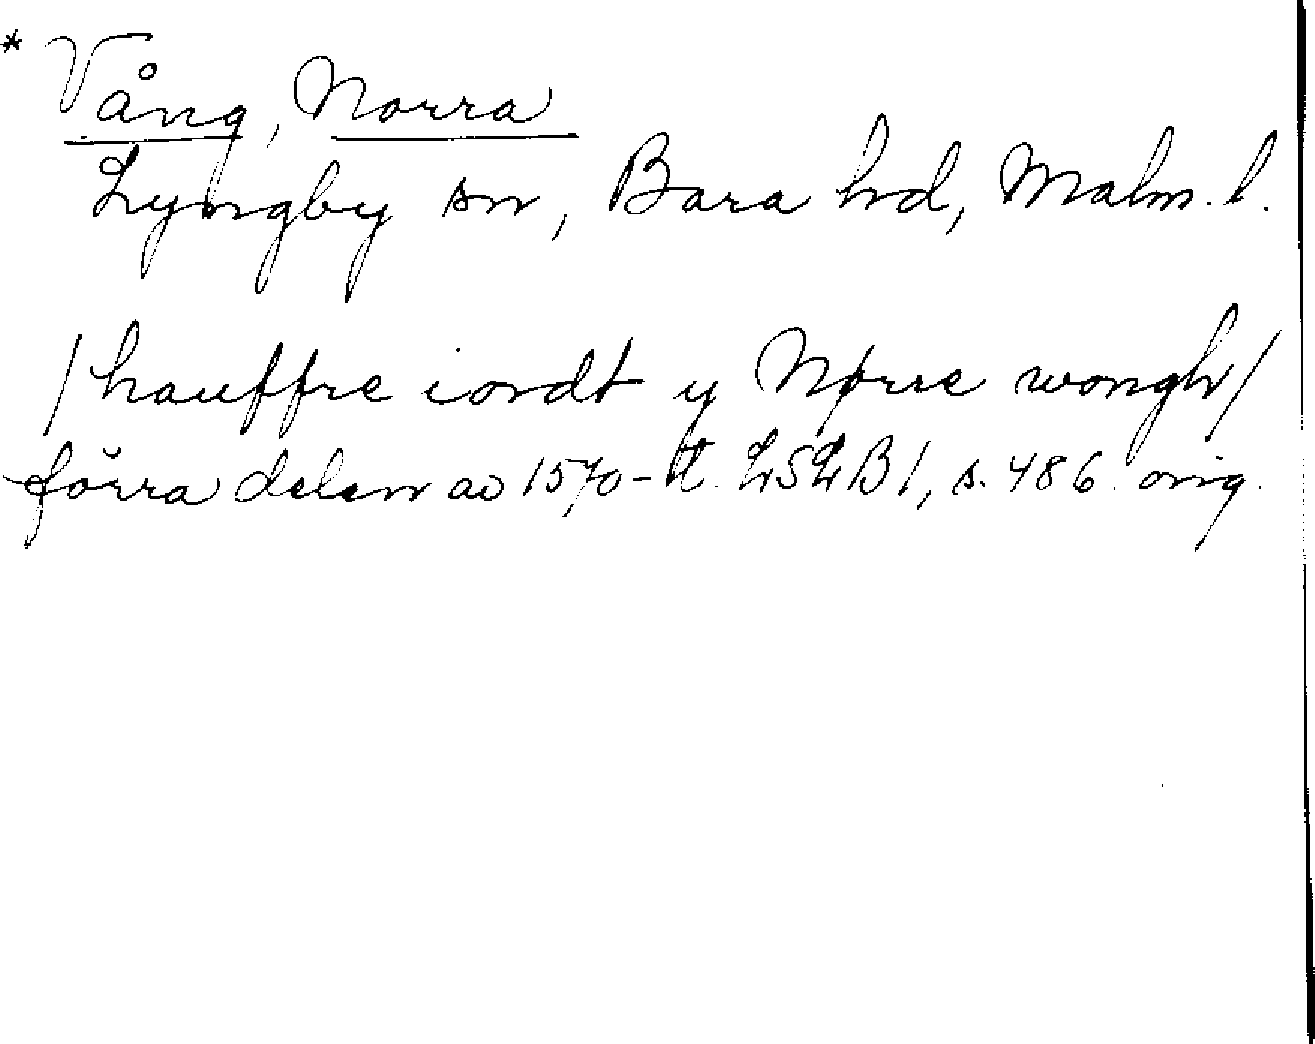 * Vång, Norra
Lyngby sn, Bara hd, Malm. l.
/hauffre iordt y Nørre wongh/
förra delen av 1570-t. LSLB 1, s. 486. orig.